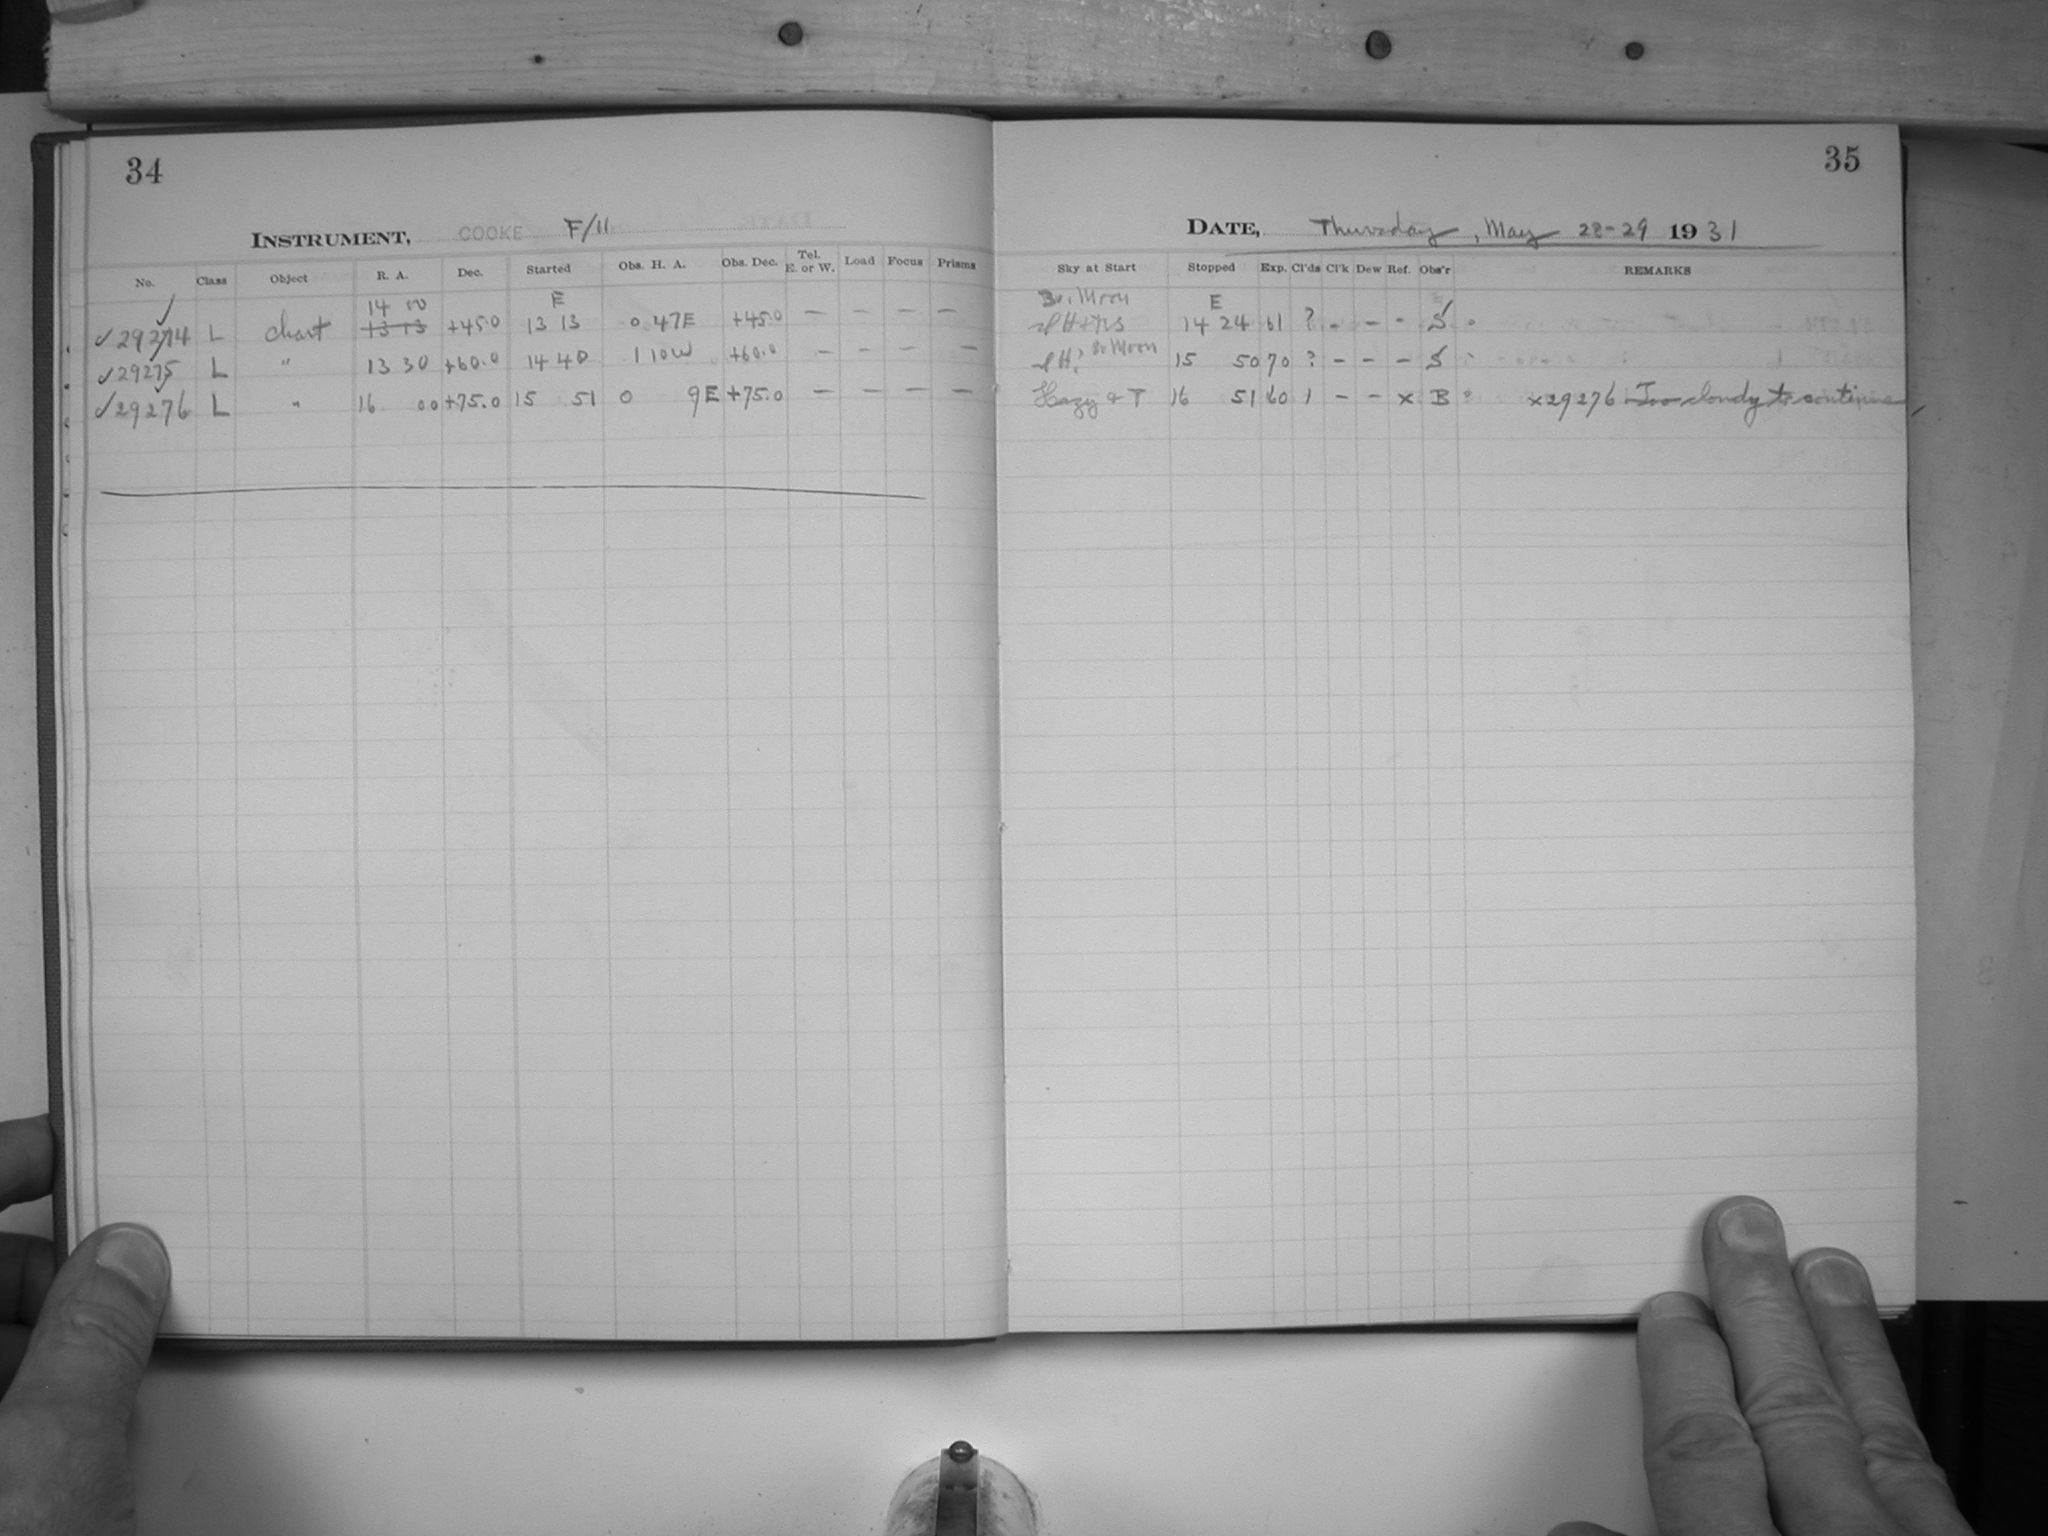 34
INSTRUMENT, COOKE F/11
No. Class Object R. A. Dec. Started Obs. H. A. Obs. Dec. Tel. E. or W. Load Focus Prisms
14 00 E
✓29274 L chart 13 13 +45.0 13 13 0 47E +45.0 — — — —
✓29275 L " 13 30 +60.0 14 40 1 10W +60.0 — — — —
✓29276 L " 16 00 +75.0 15 51 0 9E +75.0 — — — —
35
DATE, Thursday, May 28-29 1931
Sky at Start Stopped Exp. Cl'ds Cl'k Dew Ref. Obs'r REMARKS
Br. Moon E
14 24 61 ? - - - S
Br Moon 15 50 70 ? - - - S
Hazy & T 16 51 60 1 - - x B x29276 Too cloudy to continue